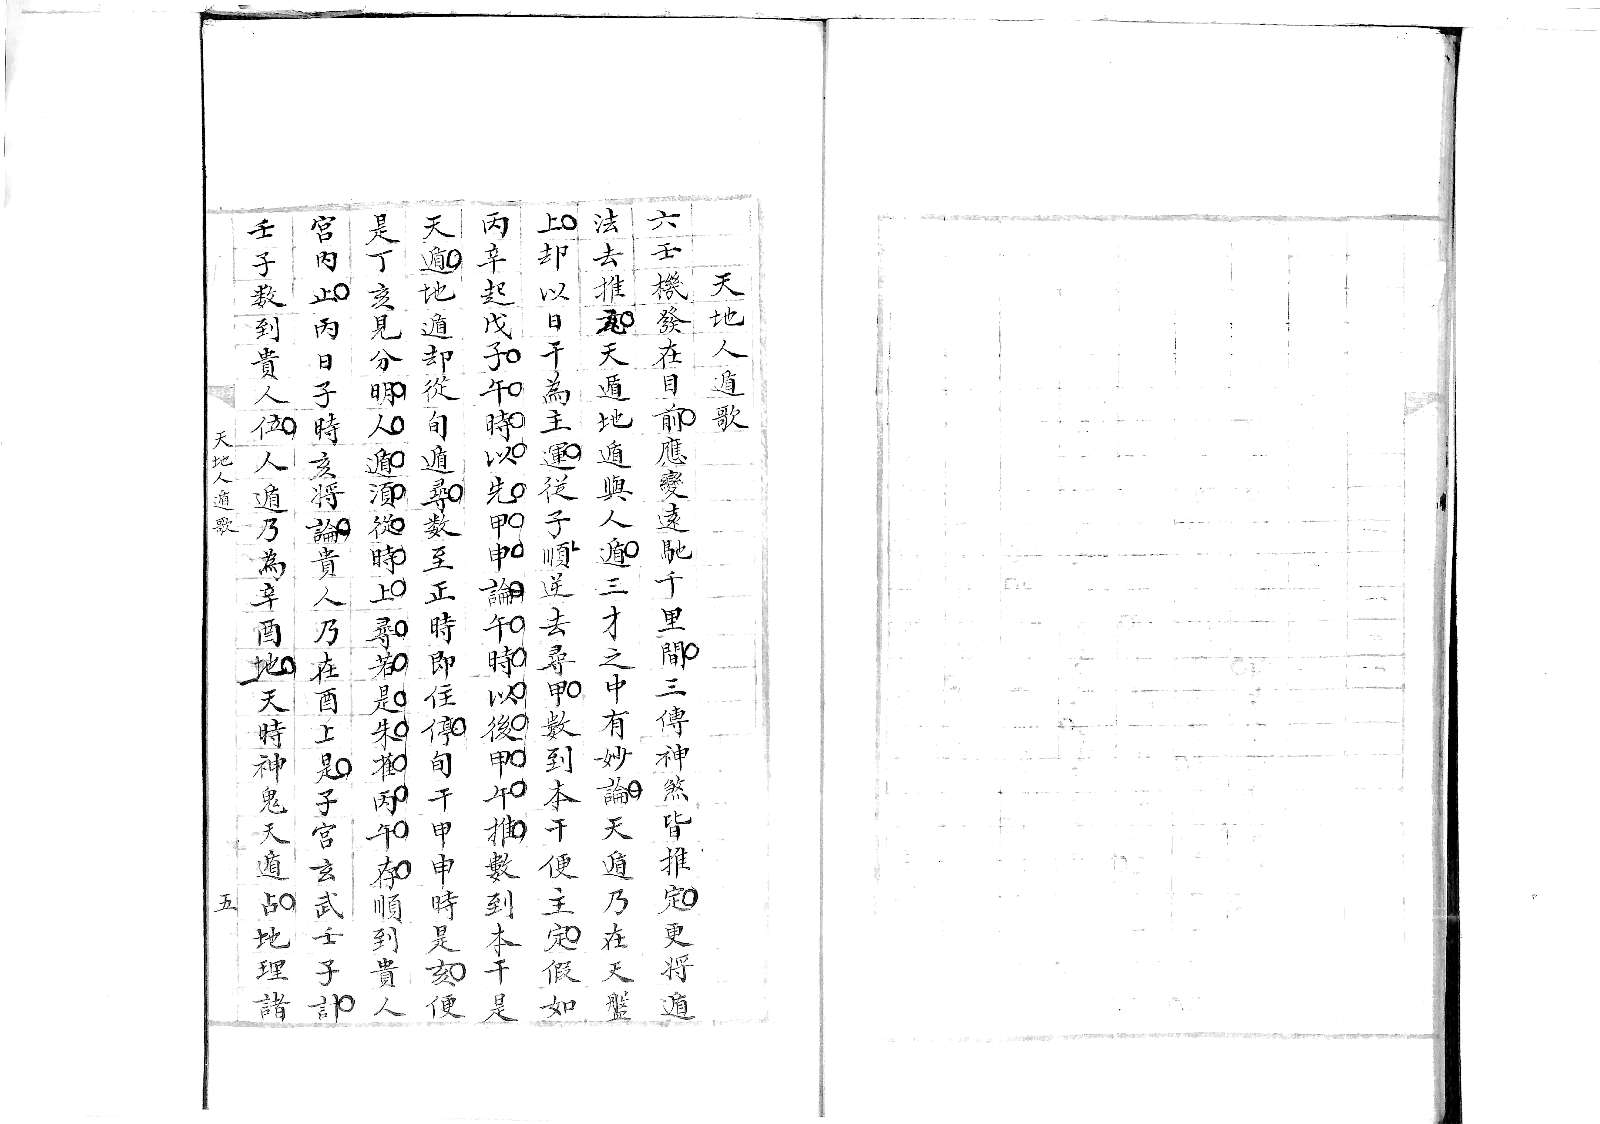 天地人遁歌
六壬機發在目前應變遠馳千里間三傳神煞皆推定更將遁
法去推天遁地遁與人遁三才之中有妙論天遁乃在天盤
上却以日干為主運從子順逆去尋甲數到本干便主定假如
丙辛起戊子午時以先甲申論午時以後甲午推數到本干是
天遁地遁却從旬遁尋数至正時即住停旬干甲申時是亥便
是丁亥見分明人遁須從時上尋若是朱雀丙午存順到貴人
宮內止丙日子時亥將論貴人乃在酉上是子宮玄武壬子計
壬子数到貴人位人遁乃為辛酉地天時神鬼天遁占地理諸
天地人遁歌
五